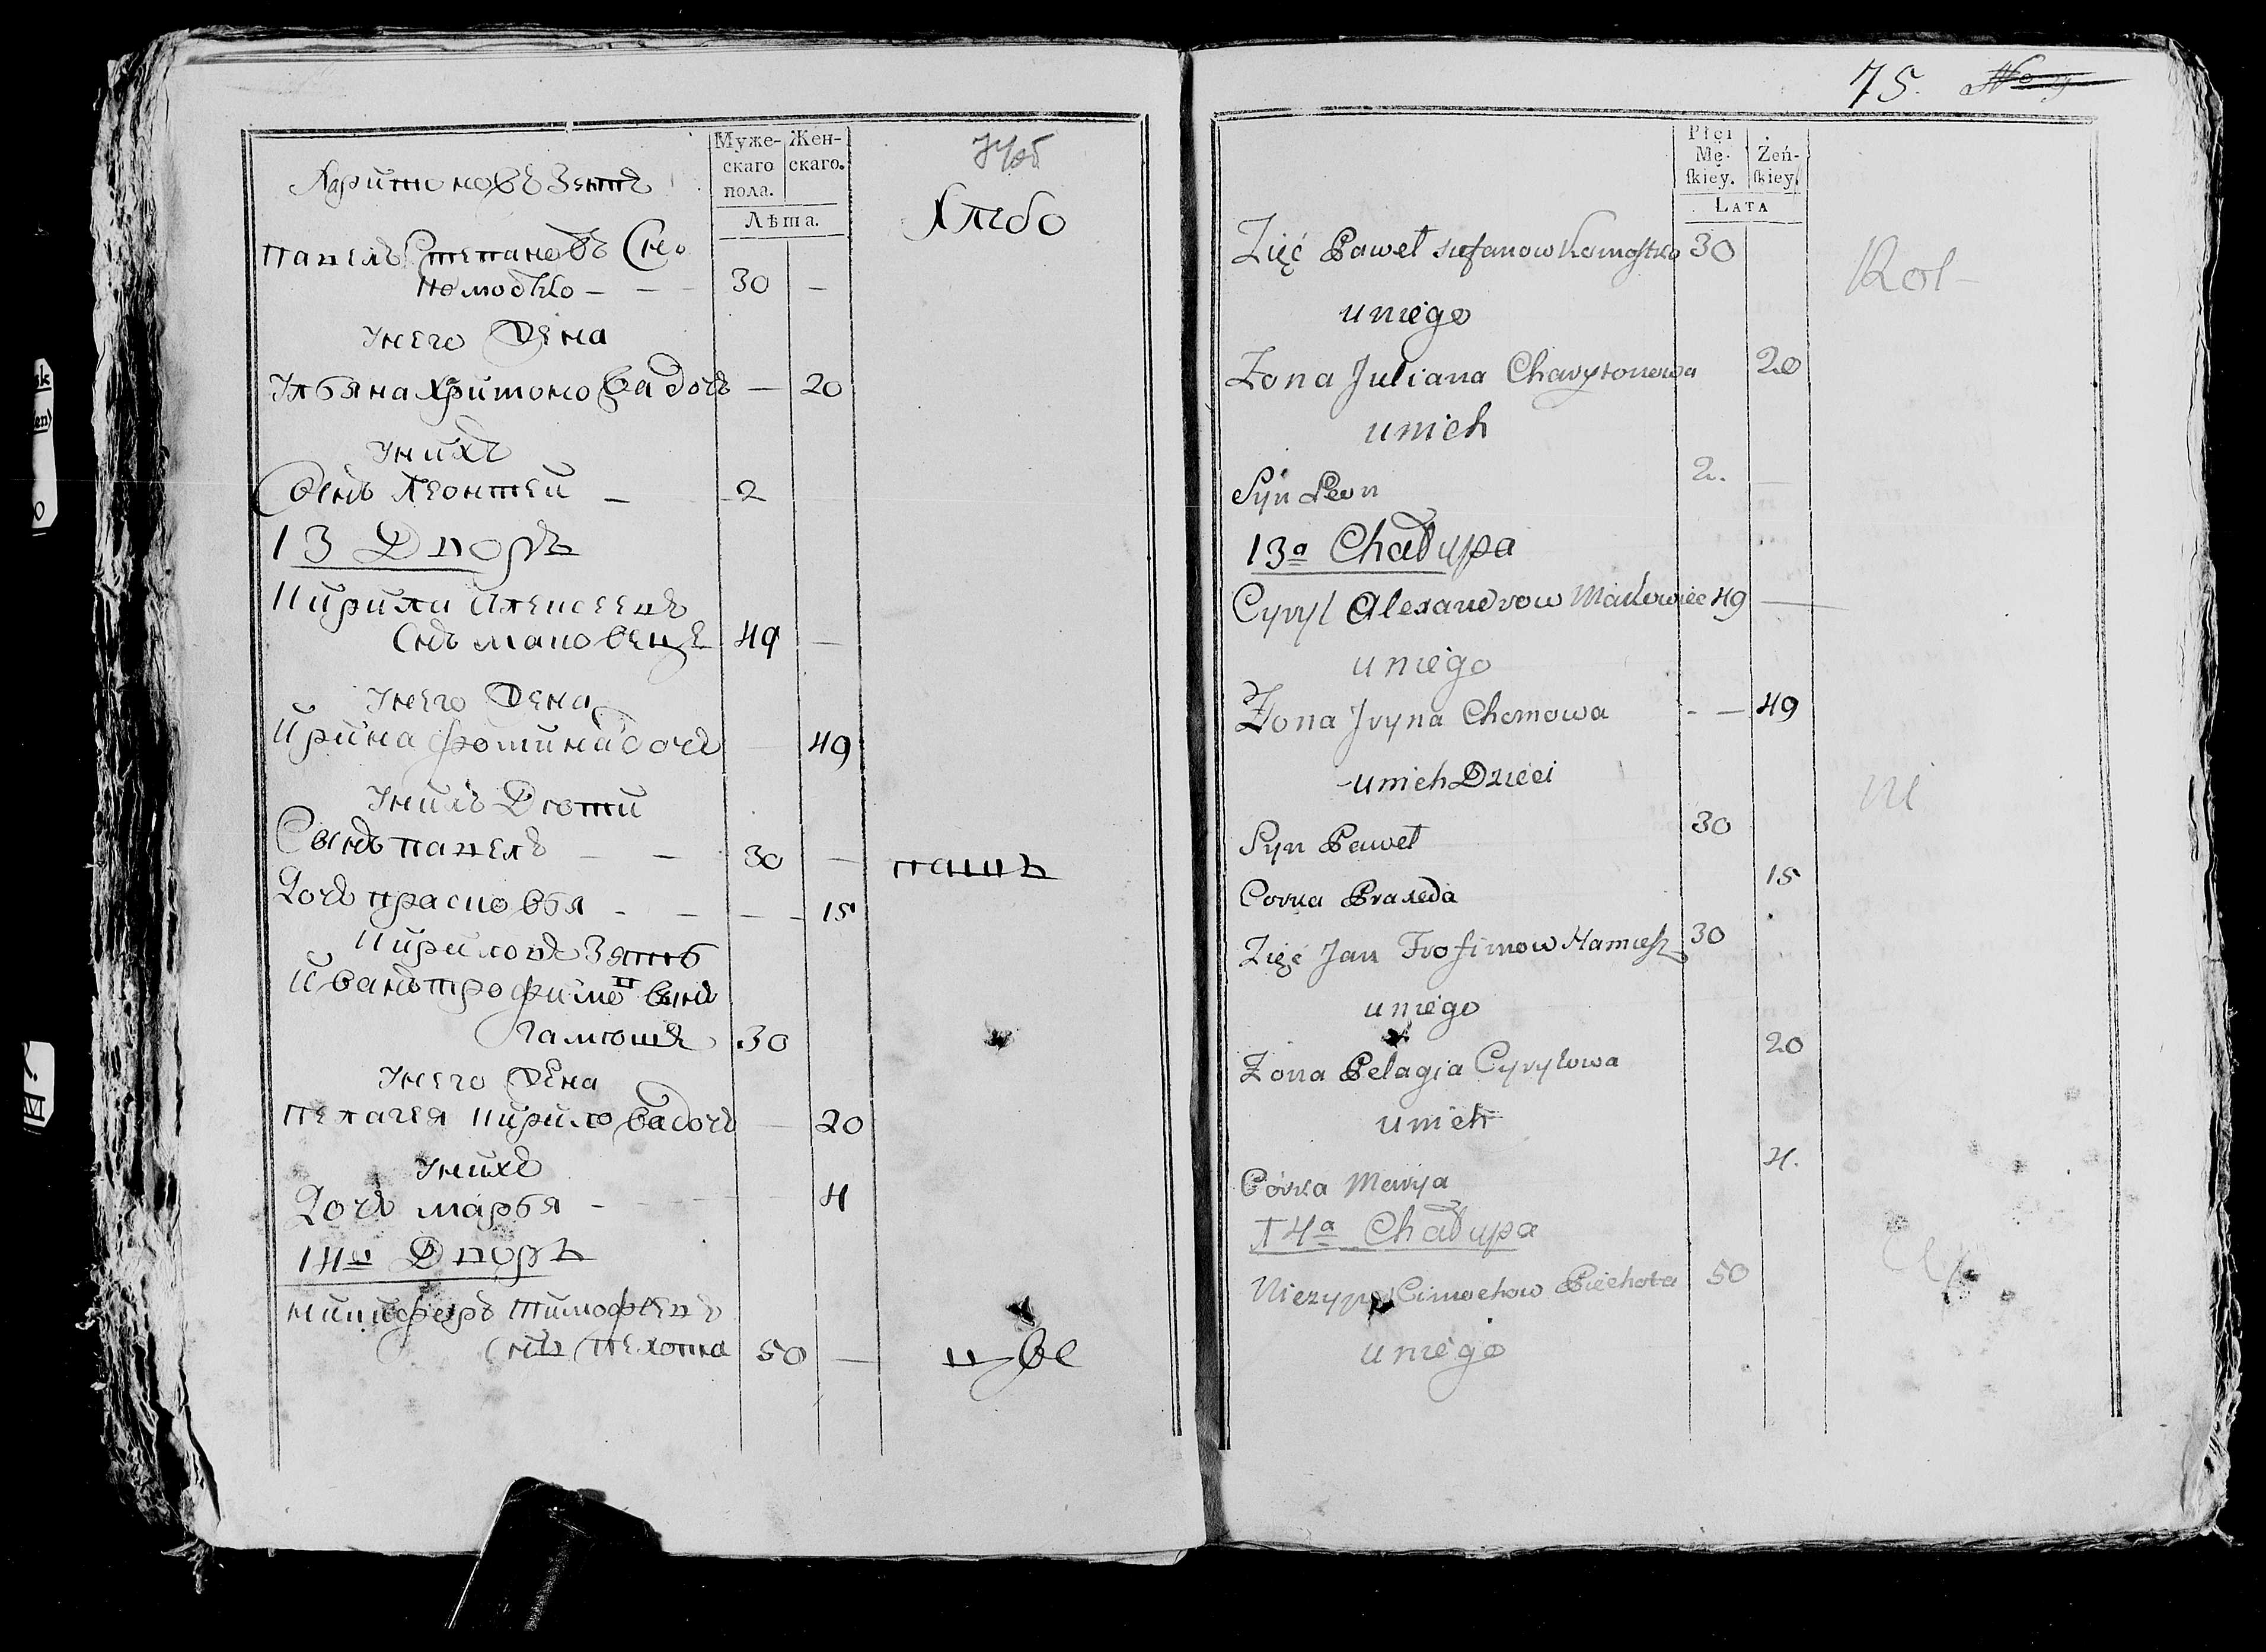 Муже-
скаго
пола.
Жен-
скаго.
Лѣта.
Харитоновъ Зять
Павелъ Степановъ Снъ
Комодко - - - 30 -
Унего Жена
Ульяна Харитонова дочь - 20
Унихъ
Сынъ Леонтей - 2
13 Дворъ
Кирила Алексеевъ
Снъ маковецъ 49 -
Унего Жена
Ирина фомина дочь - 49
Унихъ Дѣти
Сынъ павелъ - - 30 -
Дочь прасковья - - - - 15
Кириловъ Зять
Иванъ трофимовъ сынъ
Гамѣшъ 30
Унего Жена
пелагея Кирилова дочь - 20
Унихъ
Дочь марья - 4
14й Дворъ
никифоръ тимофѣевъ
снъ пехота 50 -
хлѣбо
пашъ
75.
Płci
Mę-
ſkiey.
Żeń-
ſkiey.
LATA
Zięć Paweł Stefanow Komostko 30
uniego
Żona Juliana Charytonowa 20
unich
Syn Leon 2.
13ª Chałupa
Cyryl Alexandrow Makowiec 49 -
uniego
Żona Iryna Chomowa - - 49
unich Dzieci
Syn Paweł 30
Corka Praxeda 15
Zięć Jan Trofimow Hamiesz 30
uniego
Żona Pelagia Cyryłowa 20
unich
Córka Marya 4.
14ª Chałupa
Cimochow Piechota 50
uniego
Rol-
ni